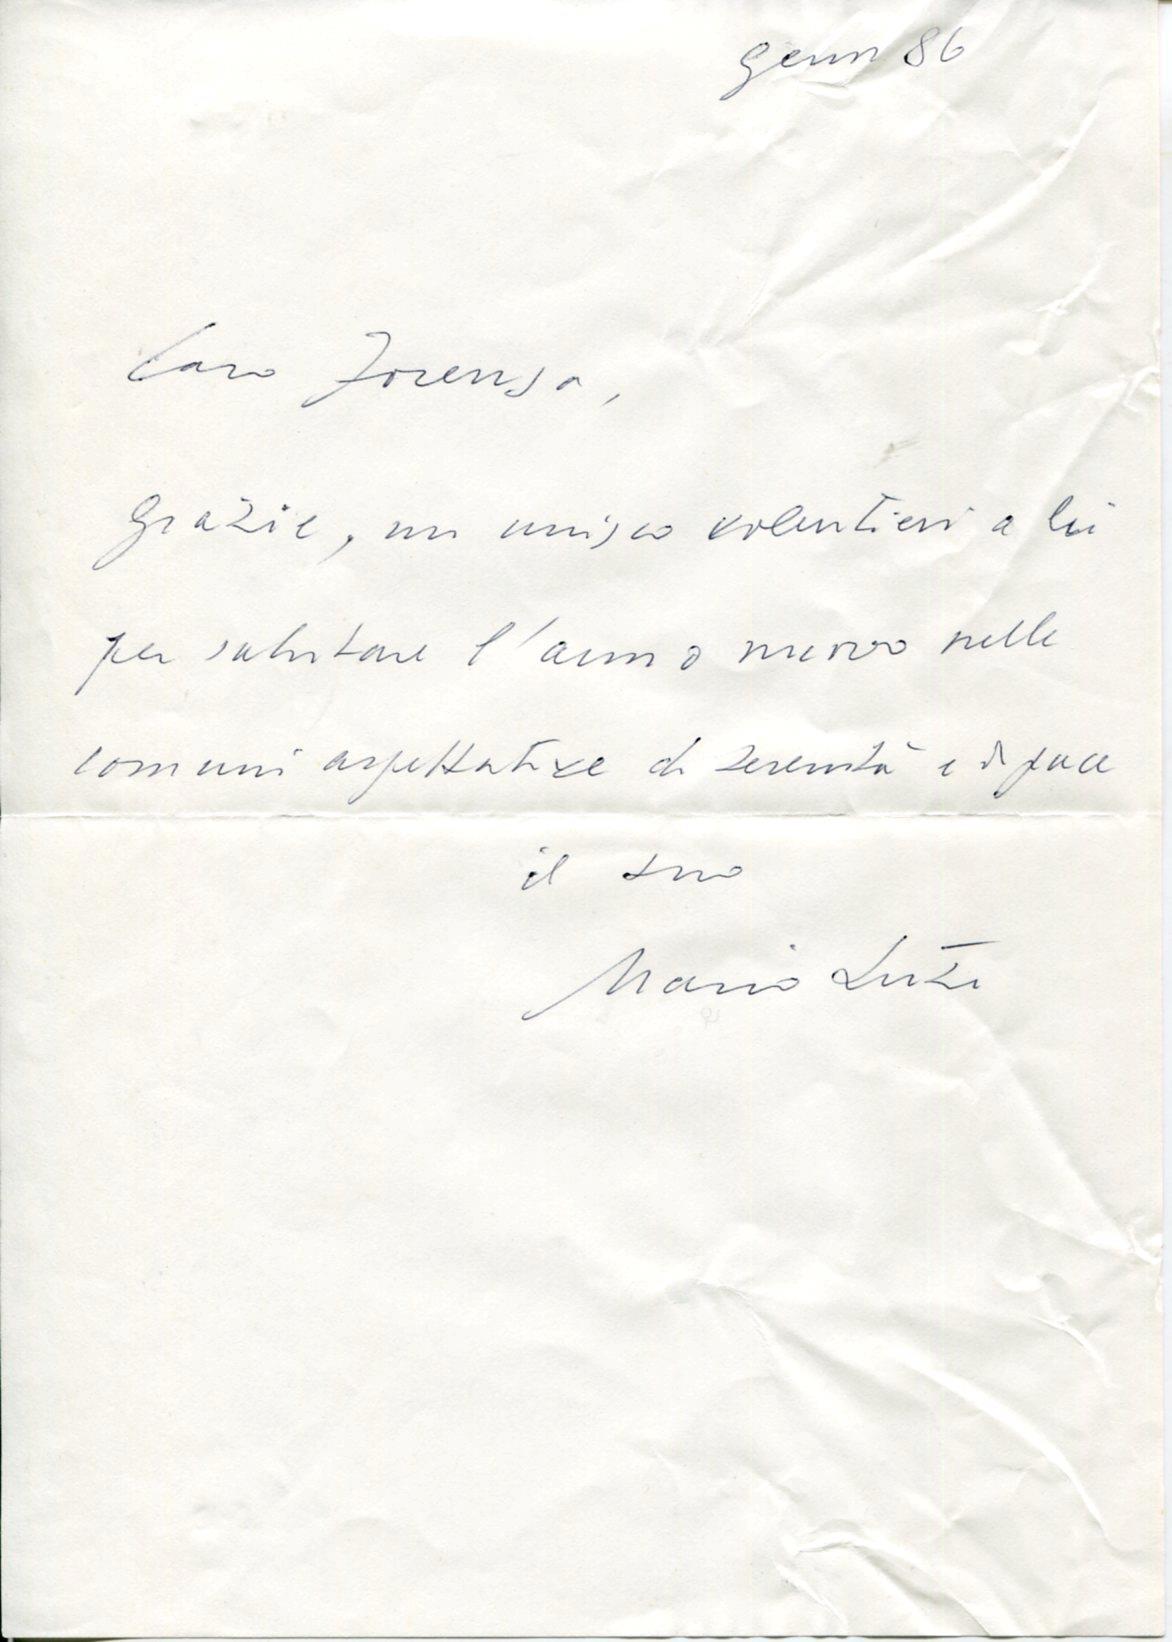 genn 86
Caro Forenza,
Grazie, mi unisco volentieri a lei
per salutare l'anno nuovo nelle
comuni aspettative di serenità e di pace
il suo
Mario Luzi